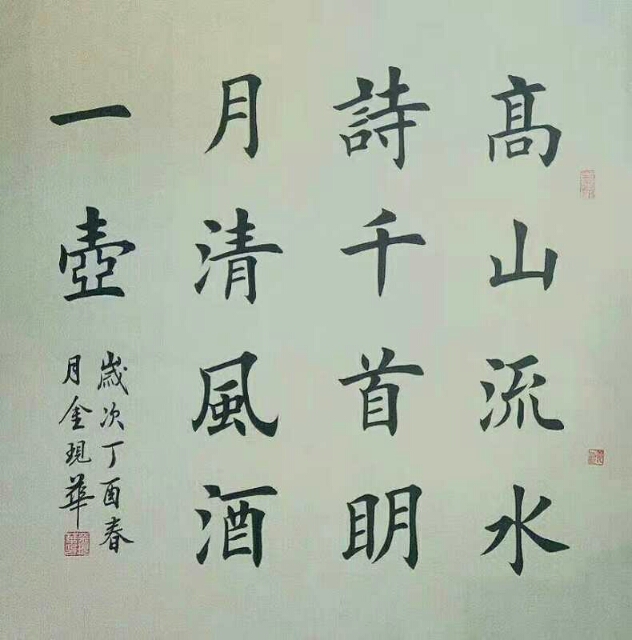 髙山流水
詩千首明
月清風酒
一壺
歲次丁酉春
月金現華